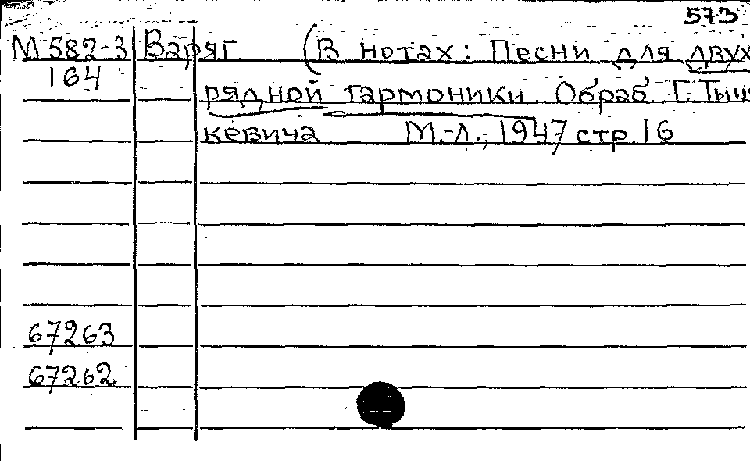 573
М 582-3 Варяг (В нотах: Песни для двух
164 рядной гармоники. Обраб. Г. Тыш
кевича М.-Л., 1947 стр. 16
67263
67262